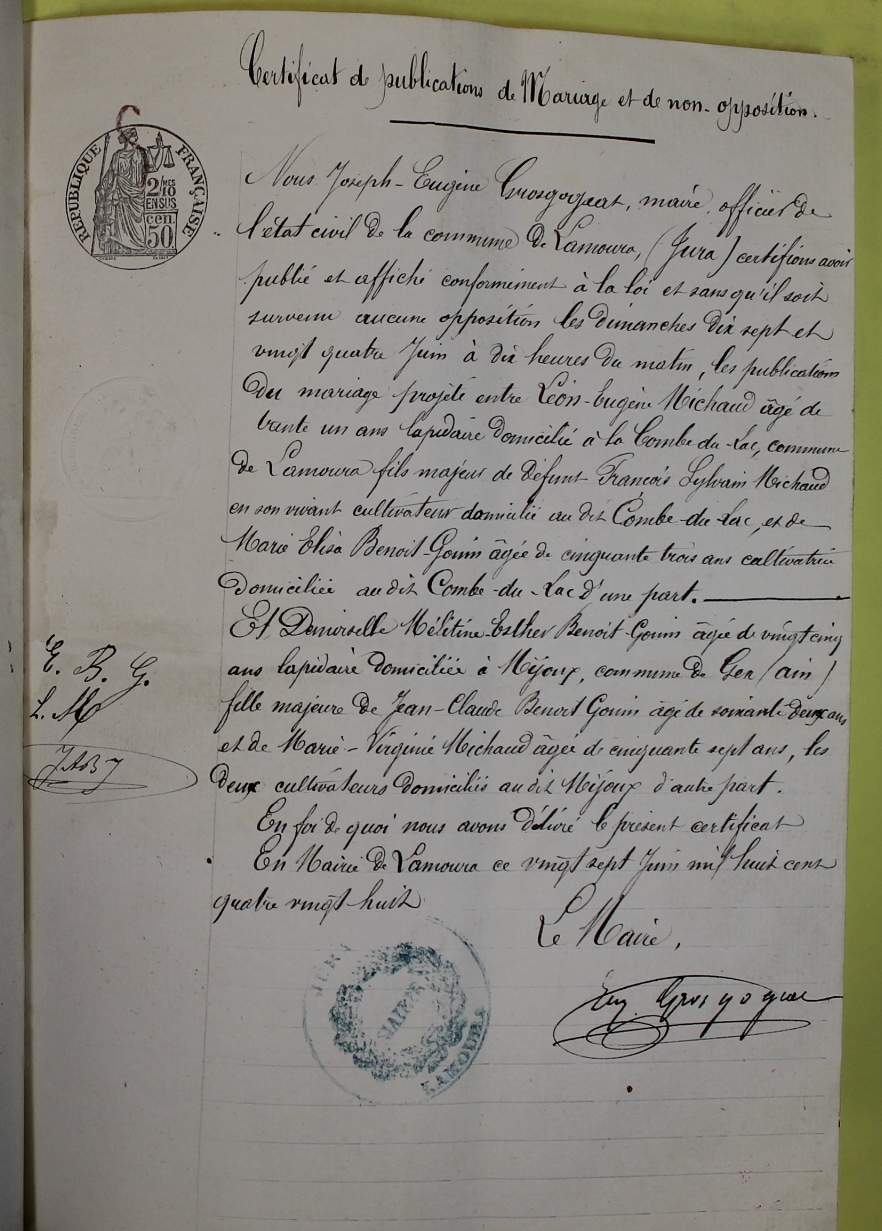 Certificat de publications de Mariage et de non-opposition.
RÉPUBLIQUE FRANÇAISE
2/10 MES
EN SUS
50 cen
Nous Joseph-Eugène Grosgogeat, maire, officier de
l'état civil de la commune de Lamoura, (Jura) certifions avoir
publié et affiché conformément à la loi et sans qu'il soit
survenu aucune opposition les dimanches dix sept et
vingt quatre Juin à dix heures du matin, les publications
du mariage projeté entre Léon-Eugène Michaud âgé de
trente un ans lapidaire domicilié à la Combe-du-Lac, commune
de Lamoura fils majeur de défunt François Sylvain Michaud
en son vivant cultivateur domicilié au dit Combe-du-Lac, et de
Marie Elisa Benoit-Gonin âgée de cinquante trois ans cultivatrice
domiciliée au dit Combe-du-Lac d'une part.
Et Demoiselle Mélitine-Esther Benoit-Gonin âgée de vingt cinq
ans lapidaire domiciliée à Mijoux, commune de Gex (ain)
fille majeure de Jean-Claude Benoit Gonin âgé de soixante deux ans
et de Marie-Virginie Michaud âgée de cinquante sept ans, les
deux cultivateurs domiciliés au dit Mijoux d'autre part.
En foi de quoi nous avons délivré le présent certificat
En Mairie de Lamoura ce vingt sept Juin mil huit cent
quatre vingt-huit
Le Maire,
Eug. Grosgogeat
E. B. G.
L. M
JURA
MAIRIE
LAMOURA